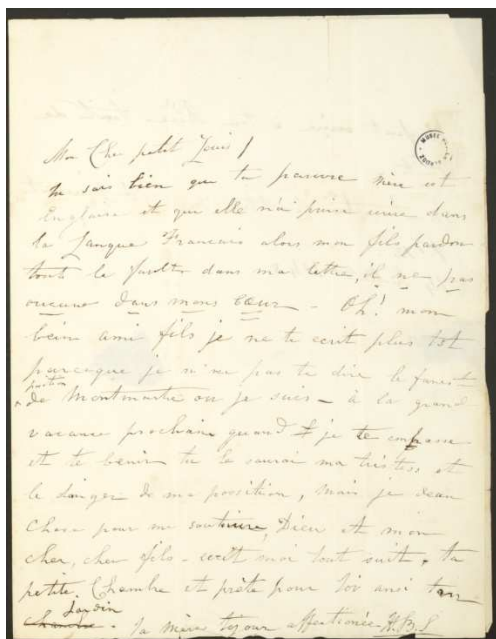 Mon Cher petit Louis!
tu sais bien que ta pauvre mère est
Englaise et que elle dans
la Langue Francais alors mon fils pardon
tout le faultes dans ma lettre, il ne pas
oucune dans mons cœur - Oh! mon
bein ami fils je ne te ecrit plus tot
parceque je pas te dire le
position
de Montmartre ou je suis - à la grand
vacance prochain quand je te embrasse
et te benir tu le saurai ma tristess et
le danger de ma possition, mais je
chose pour me soutenire, Dieu et mon
cher, cher fils - ecrit moi tout suit, ta
petite Chambre et prète pour toi ansi ton
Jardin
ta mère tojour affectionée H.B.S